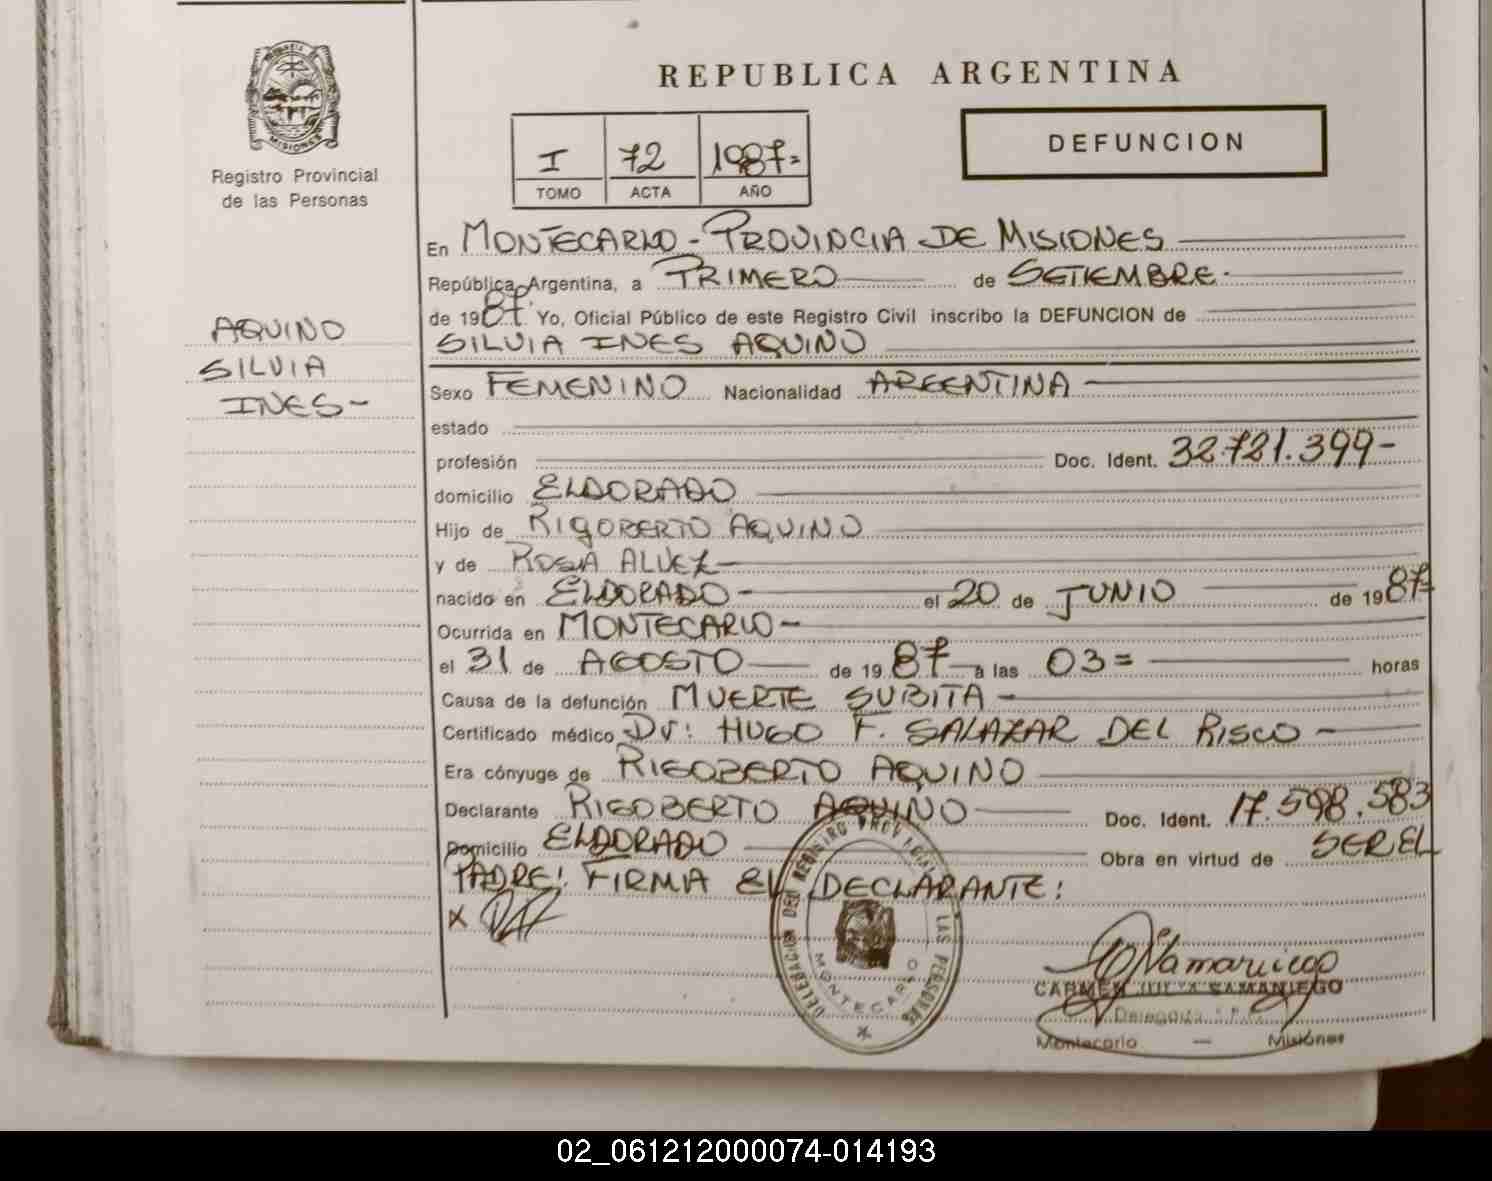 REPUBLICA ARGENTINA
MISIONES
Registro Provincial
de las Personas
I 72 1987=
TOMO ACTA AÑO
DEFUNCION
En MONTECARLO - PROVINCIA DE MISIONES
República Argentina, a PRIMERO de SETIEMBRE.
de 1987. Yo, Oficial Público de este Registro Civil inscribo la DEFUNCION de
SILVIA INES AQUINO
AQUINO
SILVIA
INES-
Sexo FEMENINO Nacionalidad ARGENTINA
estado
profesión Doc. Ident. 32.721.399-
domicilio ELDORADO
Hijo de RIGOBERTO AQUINO
y de ROSA ALVEZ
nacido en ELDORADO- el 20 de JUNIO de 1987
Ocurrida en MONTECARLO-
el 31 de AGOSTO de 1987 a las 03= horas
Causa de la defunción MUERTE SUBITA-
Certificado médico Dr: HUGO F. SALAZAR DEL RISCO-
Era cónyuge de RIGOBERTO AQUINO
Declarante RIGOBERTO AQUINO Doc. Ident. 17.598.583
Domicilio ELDORADO Obra en virtud de SER EL
PADRE! FIRMA EL DECLARANTE:
X
DELEGACION DEL REGISTRO PROVINCIAL DE LAS PERSONAS
MONTECARLO
CARMEN JULIA SAMANIEGO
Delegada
Montecarlo — Misiones
02_061212000074-014193